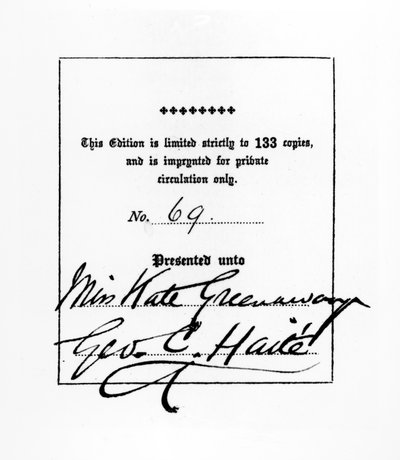 This Edition is limited strictly to 133 copies,
and is imprynted for private
circulation only.
No. 69.
Presented unto
Miss Kate Greenaway
Geo. C. Haité